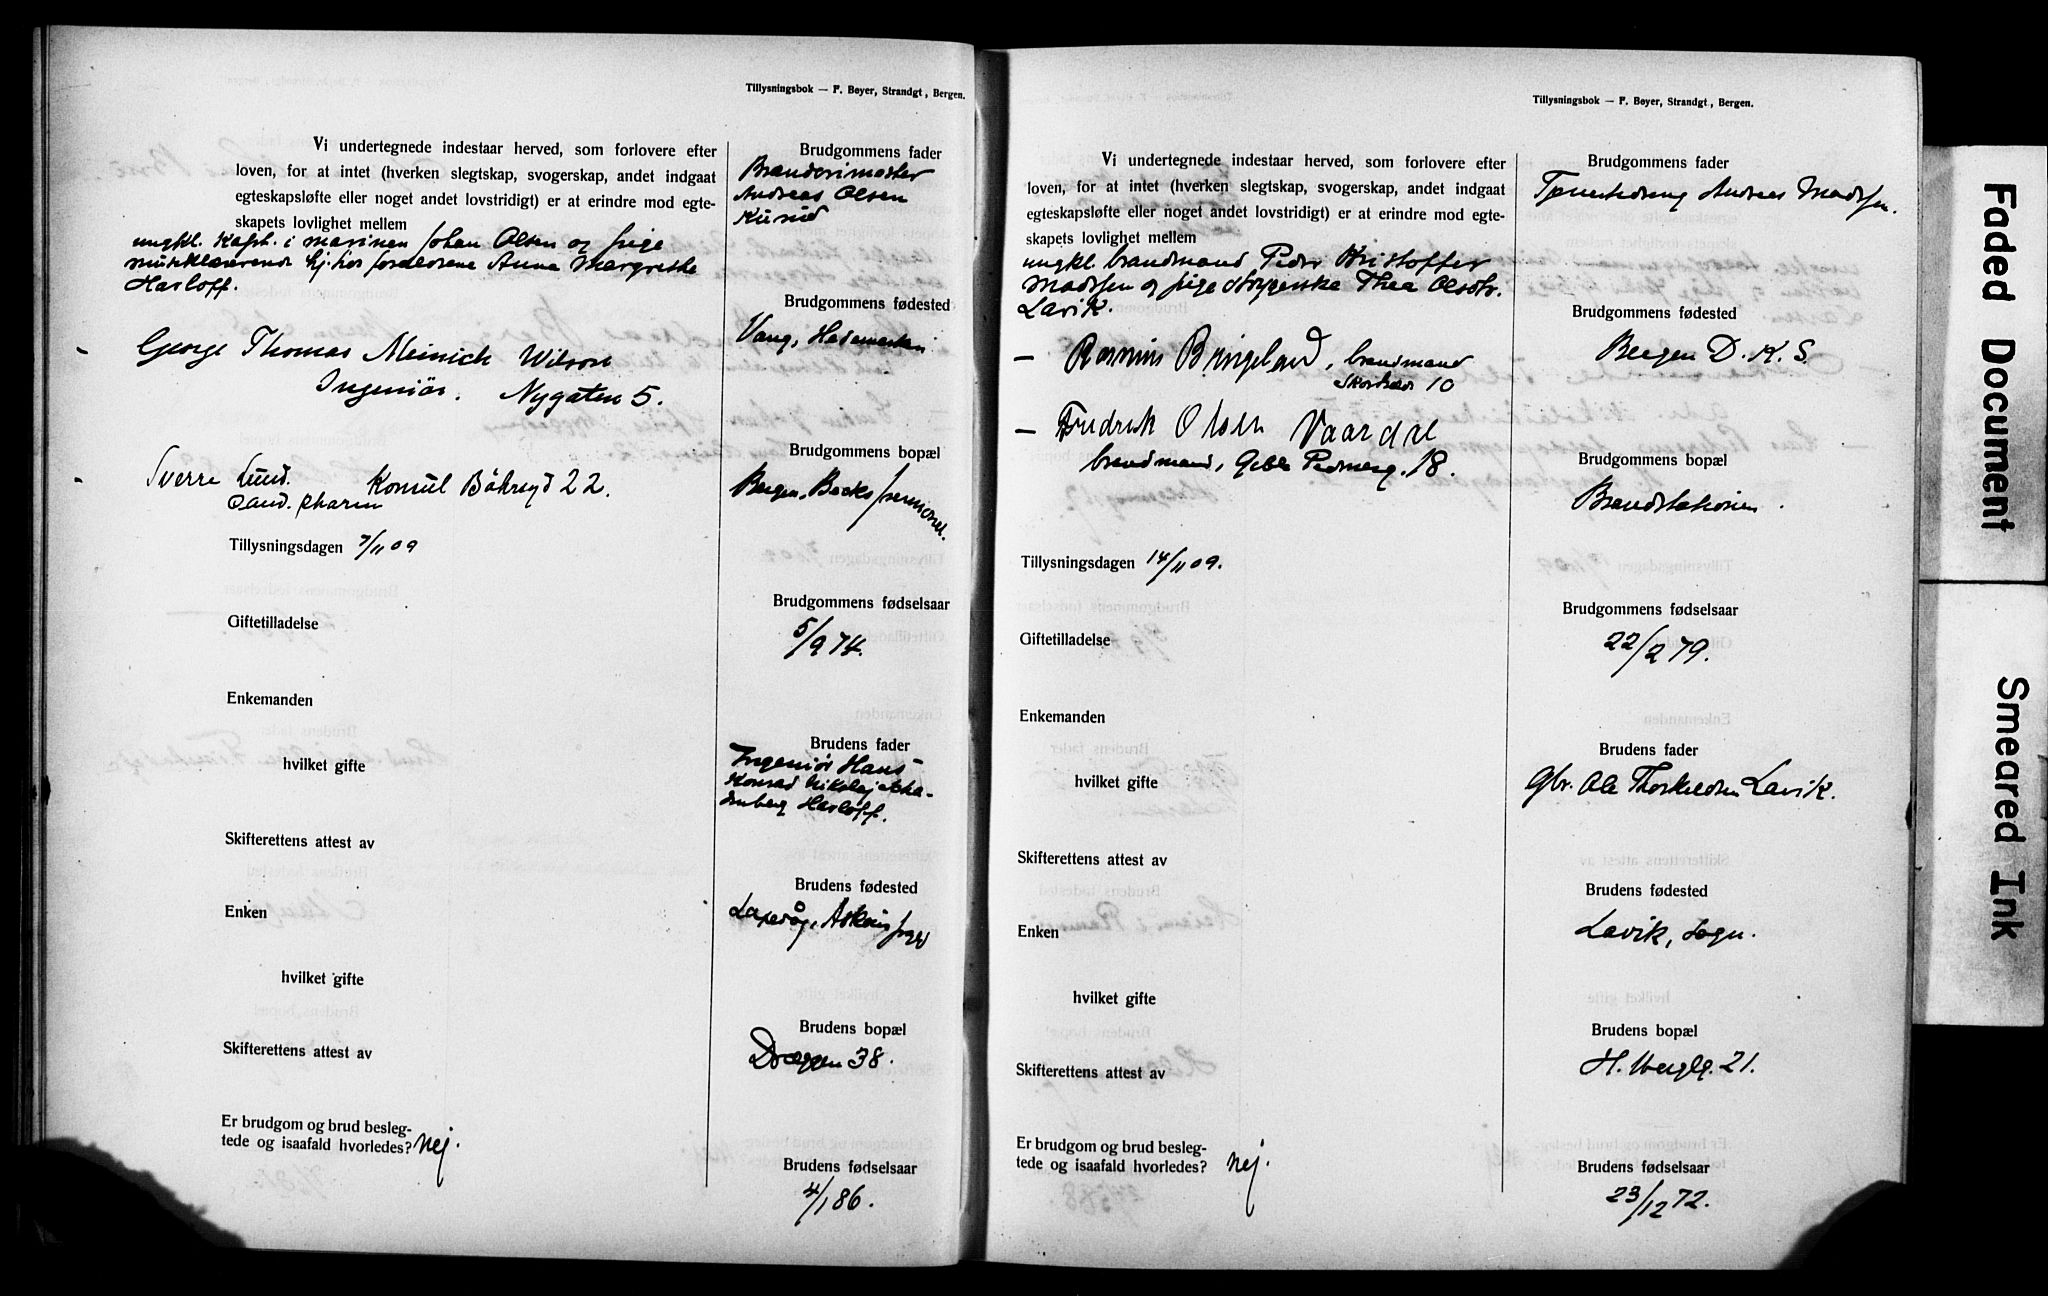 Tillysningsbok — F. Beyer, Strandgt, Bergen.
Vi undertegnede indestaar herved, som forlovere efter
loven, for at intet (hverken slegtskap, svogerskap, andet indgaat
egteskapsløfte eller noget andet lovstridigt) er at erindre mod egte-
skapets lovlighet mellem
ungkl. kapt. i marinen Johan Olsen og pige
musiklærerinde hj. hos forældrene Anna Margrethe
Harloff.
George Thomas Meinich Wilson
Ingeniør. Nygaten 5.
Sverre Lund.
Cand. pharm Konsul Børsgd 22.
Tillysningsdagen 7/11 09
Giftetilladelse
Enkemanden
hvilket gifte
Skifterettens attest av
Enken
hvilket gifte
Skifterettens attest av
Er brudgom og brud besleg-
tede og isaafald hvorledes? Nej.
Brudgommens fader
Brænderimester
Andreas Olsen
Brudgommens fødested
Vang, Hedemarken
Brudgommens bopæl
Bergen,
Brudgommens fødselsaar
5/9 74.
Brudens fader
Ingeniør Hans
Konrad Nikolaj
Harloff.
Brudens fødested
Laxevåg, Askøens prgd
Brudens bopæl
Dræggen 38.
Brudens fødselsaar
4/1 86.
Tillysningsbok — F. Beyer, Strandgt, Bergen.
Vi undertegnede indestaar herved, som forlovere efter
loven, for at intet (hverken slegtskap, svogerskap, andet indgaat
egteskapsløfte eller noget andet lovstridigt) er at erindre mod egte-
skapets lovlighet mellem
ungkl. brandmand Peder Kristoffer
Madsen og pige strygerske Thea Olsdtr.
Lavik.
— Rasmus Bringeland, brandmand
10
— Fredrik Olsen Vaardal
brandmand, Geble Pedersg. 18.
Tillysningsdagen 14/11 09.
Giftetilladelse
Enkemanden
hvilket gifte
Skifterettens attest av
Enken
hvilket gifte
Skifterettens attest av
Er brudgom og brud besleg-
tede og isaafald hvorledes? Nej.
Brudgommens fader
Andreas Madsen.
Brudgommens fødested
Bergen D. K. S.
Brudgommens bopæl
Brandstationen.
Brudgommens fødselsaar
22/2 79.
Brudens fader
Gbr. Ole Thorkildsen Lavik.
Brudens fødested
Lavik, Sogn.
Brudens bopæl
H. Wergelg. 21.
Brudens fødselsaar
23/12 72.
Faded Document
Smeared Ink